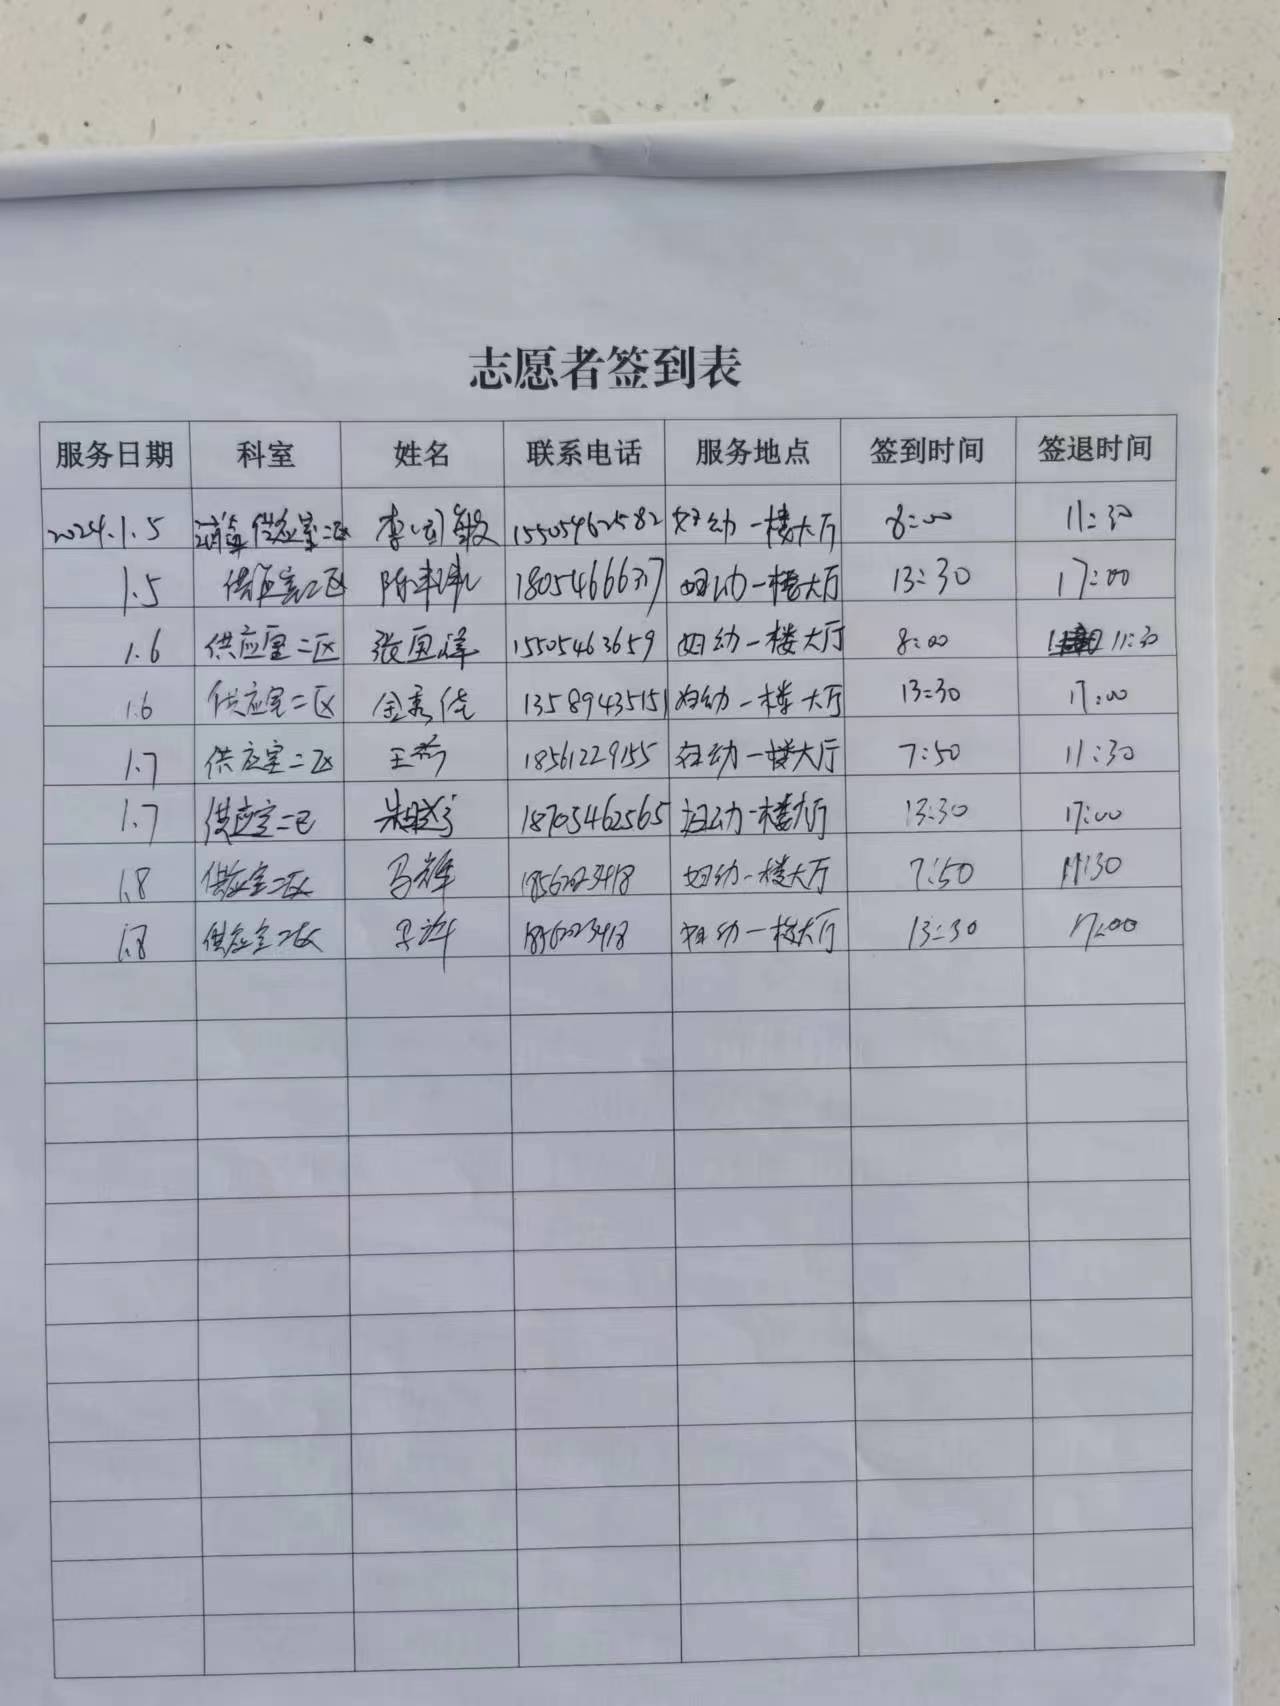 志愿者签到表
服务日期 科室 姓名 联系电话 服务地点 签到时间 签退时间
2024.1.5 供应室二区 李 敏 15505462582 妇幼一楼大厅 8:00 11:30
1.5 供应室二区 陈 18054666317 妇幼一楼大厅 13:30 17:00
1.6 供应室二区 张 15505463659 妇幼一楼大厅 8:00 11:30
1.6 供应室二区 金秀佳 13589435151 妇幼一楼大厅 13:30 17:00
1.7 供应室二区 王 18561229155 妇幼一楼大厅 7:50 11:30
1.7 供应室二区 18705462565 妇幼一楼大厅 13:30 17:00
1.8 供应室二区 马辉 妇幼一楼大厅 7:50 11:30
1.8 供应室二区 妇幼一楼大厅 13:30 17:00